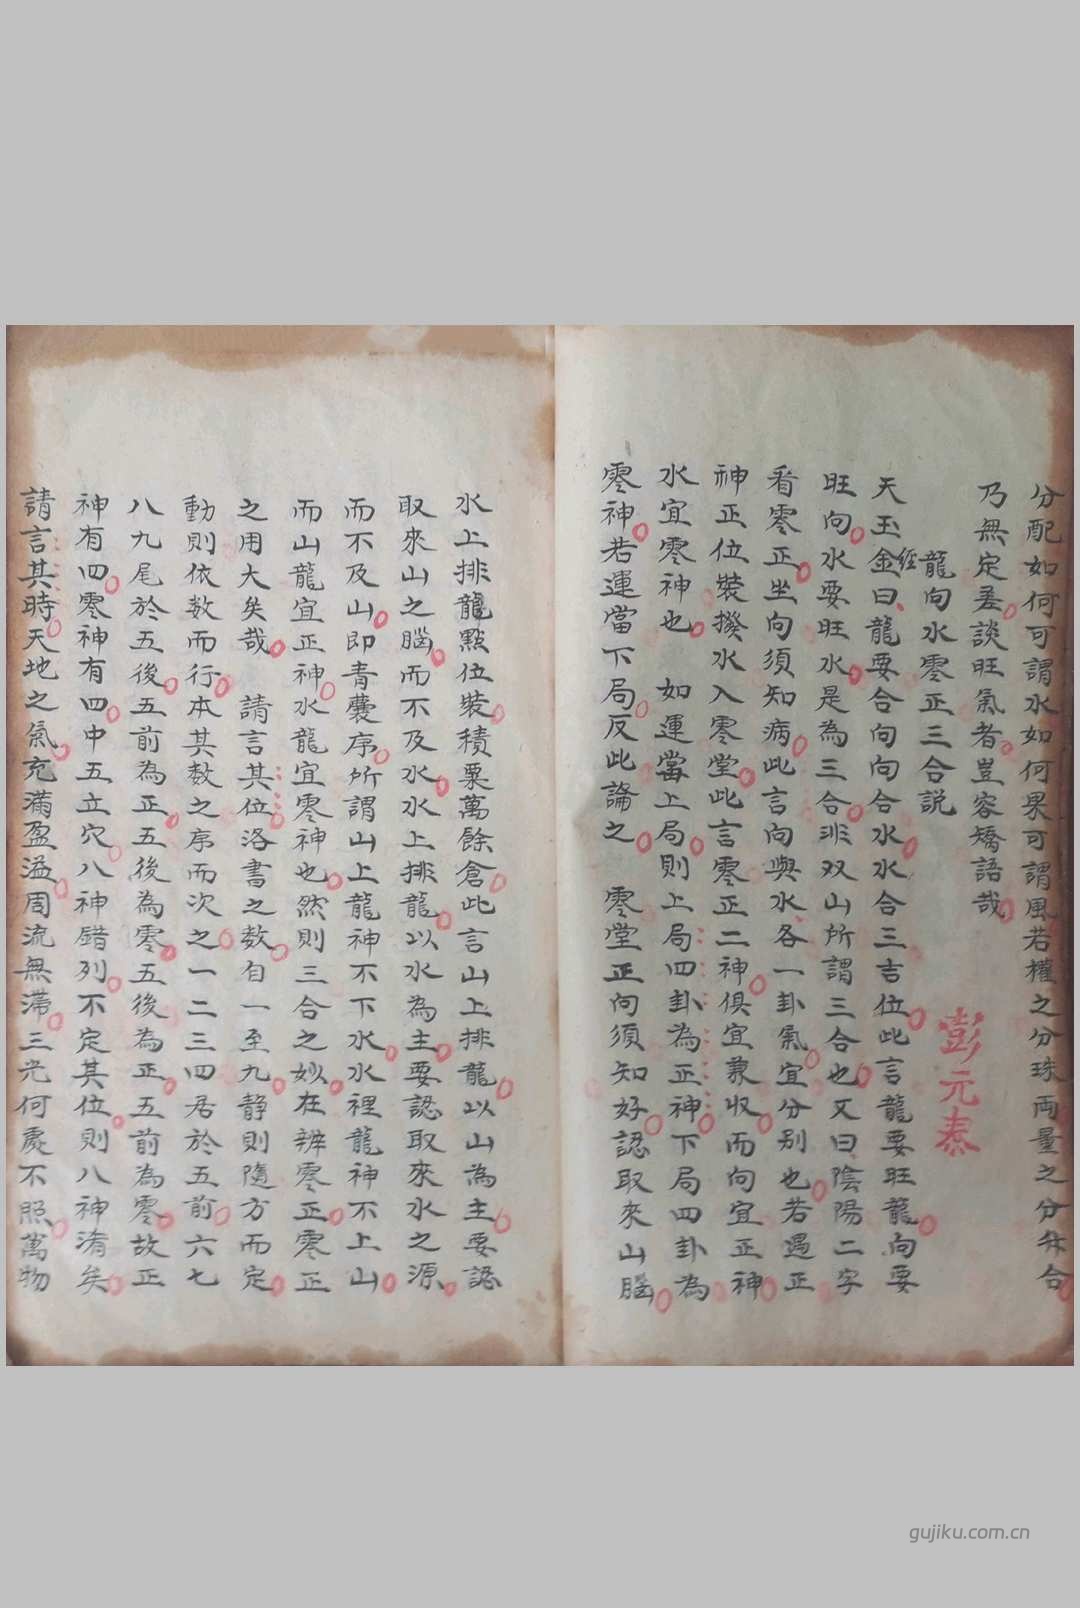 分配如何可謂水如何果可謂風若權之分珠両量之分𠔏合
乃無定差談旺氣者豈容矯語哉
龍向水零正三合説
彭元泰
天玉金經曰龍要合向向合水水合三吉位此言龍要旺龍向要
旺向水要旺水是為三合非双山所謂三合也又曰陰陽二字
看零正坐向須知病此言向與水各一卦氣宜分别也若遇正
神正位裝撥水入零堂此言零正二神俱宜兼收而向宜正神
水宜零神也 如運當上局則上局四卦為正神下局四卦為
零神若運當下局反此論之 零堂正向須知好認取來山腦
水上排龍點位裝積粟萬餘倉此言山上排龍以山為主要認
取來山之腦而不及水水上排龍以水為主要認取來水之源
而不及山即青囊序所謂山上龍神不下水水裡龍神不上山
而山龍宜正神水龍宜零神也然則三合之妙在辨零正零正
之用大矣哉 請言其位洛書之数自一至九静則隨方而定
動則依数而行本其数之序而次之一二三四居於五前六七
八九尾於五後五前為正五後為零五後為正五前為零故正
神有四零神有四中五立穴八神錯列不定其位則八神淆矣
請言其時天地之氣充滿盈溢周流無滯三光何處不照萬物
gujiku.com.cn